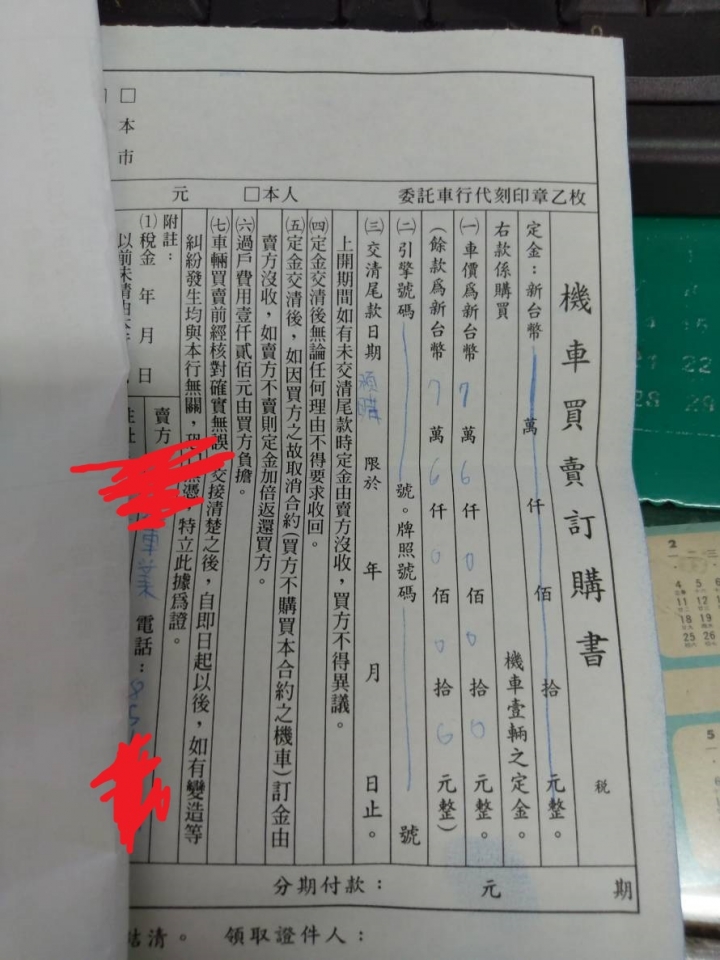 機車買賣訂購書
稅
期
定金：新台幣 萬 仟 佰 拾 元整。
右款係購買 機車壹輛之定金。
㈠車價為新台幣 7 萬 6 仟 0 佰 0 拾 0 元整。
(餘款為新台幣 7 萬 6 仟 0 佰 0 拾 0 元整)
㈡引擎號碼 號。牌照號碼 號
㈢交清尾款日期 限於 年 月 日止。
上開期間如有未交清尾款時定金由賣方沒收，買方不得異議。
㈣定金交清後無論任何理由不得要求收回。
㈤定金交清後，如因買方之故取消合約(買方不購買本合約之機車)訂金由
賣方沒收，如賣方不賣則定金加倍返還買方。
㈥過戶費用壹仟貳佰元由買方負擔。
㈦車輛買賣前經核對確實無誤 交接清楚之後，自即日起以後，如有變造等
糾紛發生均與本行無關， 憑，特立此據為證。
附註：
⑴稅金 年 月 日
以前未清由
賣方
住址
車業
電話：85
委託車行代刻印章乙枚
□本人
元
□本市
分期付款： 元
結清。 領取證件人：
2
一 二 三
4 5 6
11 12 13
18 19
25 26
5
15
22
28 29